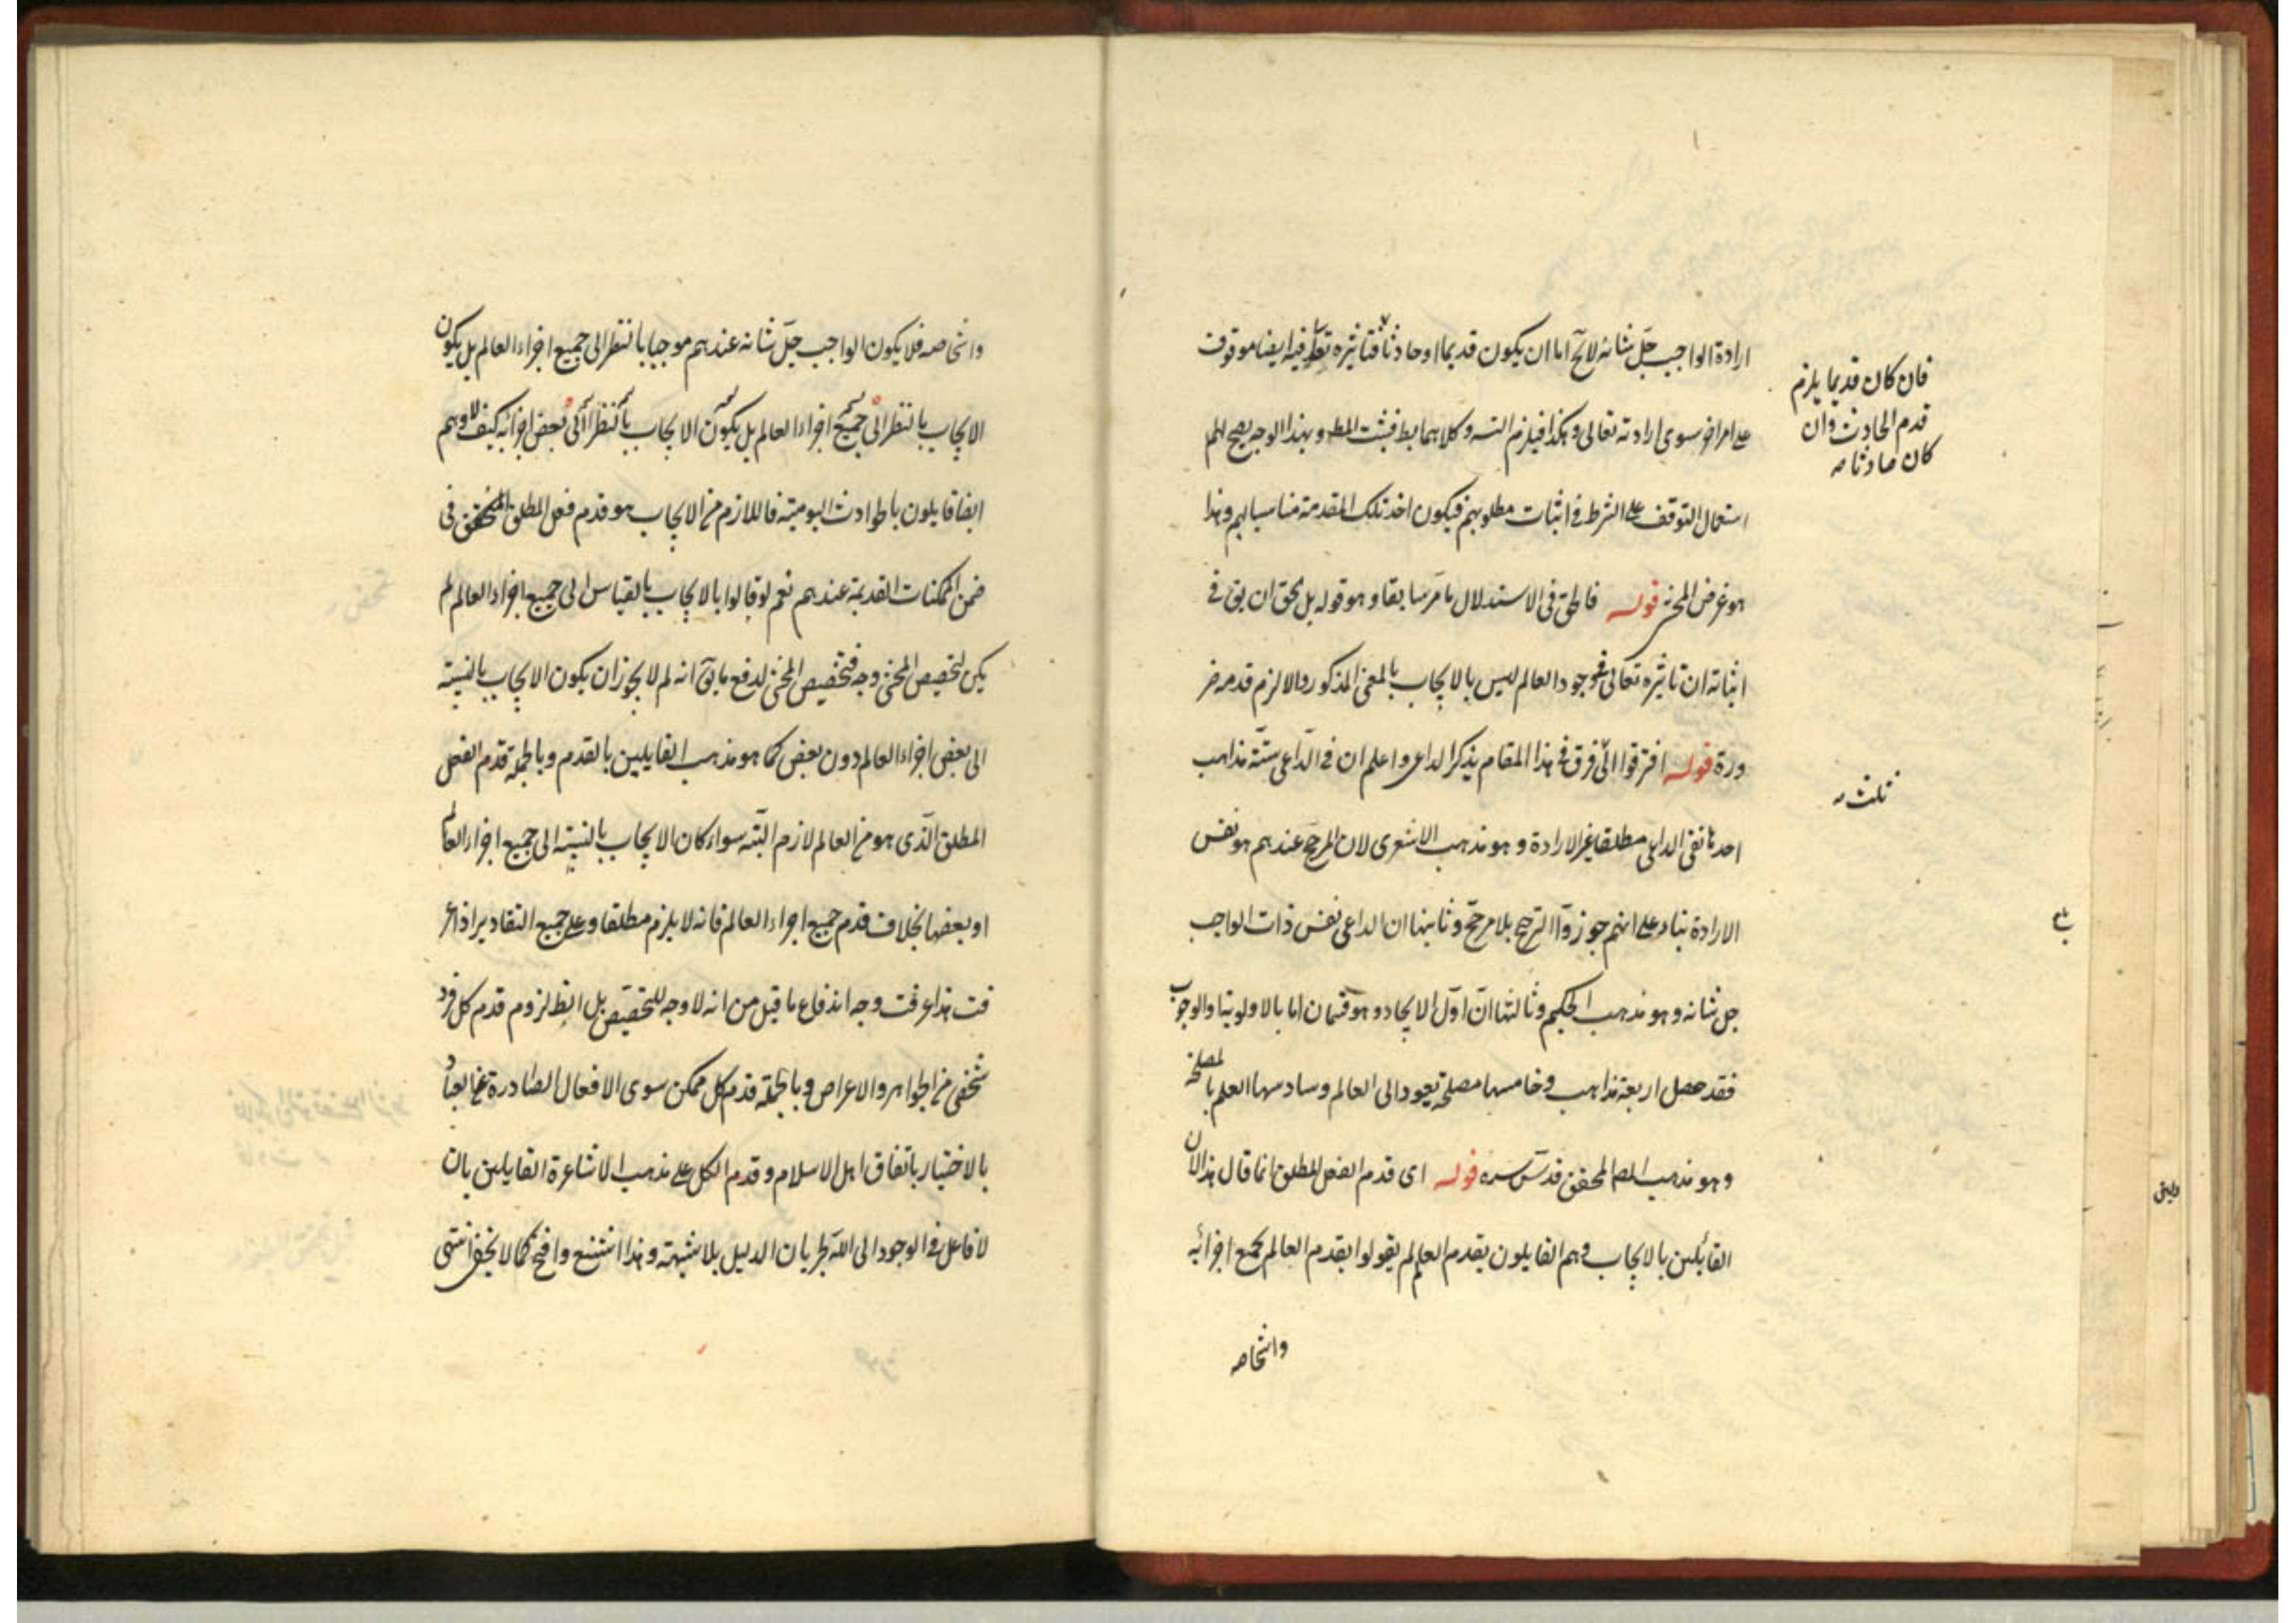 ارادة الواجب جلّ شانه لا يخ اما ان يكون قديما او حادثا فتاثيره تعالى فيه ايضا موقوف
على امر اخر سوى ارادته تعالى وهكذا فيلزم التسـ وكلاهما بط فيثبت المط وبهذا الوجه يصح لهم
استعمال التوقف على الشرط في اثبات مطلوبهم فيكون اخذ تلك المقدمة مناسبا لهم وهذا
هو غرض المحشي قوله فالحق في الاستدلال ما مرّ سابقا وهو قوله بل الحق ان يق في
اثباته ان تاثيره تعالى في وجود العالم ليس بالايجاب بالمعنى المذكور والا لزم قدمه ضر
ورة قوله افترقوا الى فرق في هذا المقام بذكر الداعي واعلم ان في الداعي ستّة مذاهب
احدها نفى الداعي مطلقا غير الارادة وهو مذهب الاشعري لان المرجح عندهم هو نفس
الارادة بناء على انهم جوزوا الترجيح بلا مرجح وثانيها ان الداعي نفس ذات الواجب
جل شانه وهو مذهب الحكيم وثالثها انّ اوّل الايجاد وهو قسمان اما بالاولوية او الوجوب
فقد حصل اربعة مذاهب وخامسها مصلحة تعود الى العالم وسادسها العلم بالمصلحة
وهو مذهب المصـ المحقق قدّس سره قوله اى قدم الفعل المطلق انما قال هذا لان
القائلين بالايجاب وهم القايلون بقدم العالم لم يقولوا بقدم العالم بجميع اجزائه
واشخاصه
فان كان قديما يلزم
قدم الحادث وان
كان حادثا
ثلث
واشخاصه فلا يكون الواجب جلّ شانه عندهم موجبا بالنظر الى جميع اجزاء العالم بل يكون
الايجاب بالنظر الى جميع اجزاء العالم بل يكون الايجاب بالنظر الى بعض اجزائه كيف لا وهم
ايضا قايلون بالحوادث اليومية فاللازم من الايجاب هو قدم فعل المطلق المتحقق في
ضمن الممكنات القديمة عندهم نعم لو قالوا بالايجاب بالقياس الى جميع اجزاء العالم لم
يكن لتخصيص المحشي وجه فتخصيص المحشي لدفع ما يق انه لم لا يجوز ان يكون الايجاب بالنسبة
الى بعض اجزاء العالم دون بعض كما هو مذهب القايلين بالقدم وبالجملة قدم الفعل
المطلق الّذى هو من العالم لازم البتّه سواء كان الايجاب بالنسبة الى جميع اجزاء العالم
او بعضها بخلاف قدم جميع اجزاء العالم فانه لا يلزم مطلقا وعلى جميع التقادير اذا عر
فت هذا عرفت وجه اندفاع ما قيل من انه لا وجه للتخصيص بل الظ لزوم قدم كل فرد
شخصي من الجواهر والاعراض وبالجملة قدم كل ممكن سوى الافعال الصّادرة عن العباد
بالاختيار باتفاق اهل الاسلام وقدم الكل على مذهب الاشاعرة القايلين بان
لا فاعل في الوجود الى اللّه لجريان الدليل بلا شبهة وهذا اشنع واضح كما لا يخفى انتهى